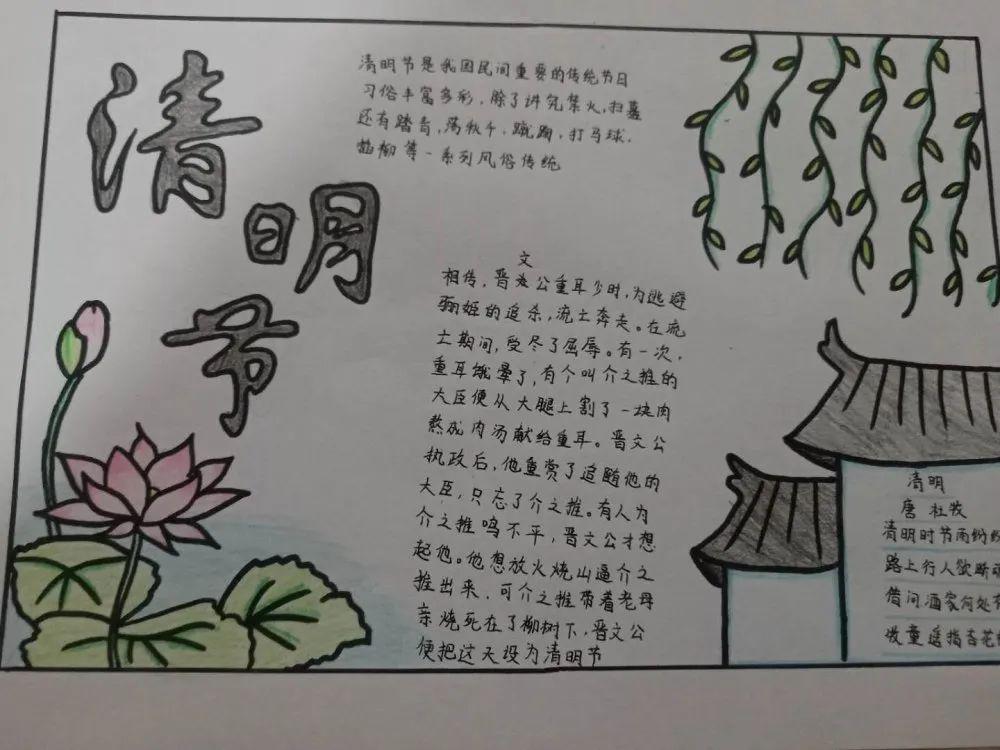 清明节
清明节是我国民间重要的传统节日
习俗丰富多彩,除了讲究禁火,扫墓
还有踏青,荡秋千,蹴鞠,打马球,
插柳等一系列风俗传统
文
相传,晋公重耳少时,为逃避
骊姬的追杀,流亡奔走。在流
亡期间,受尽了屈辱。有一次,
重耳饿晕了,有个叫介之推的
大臣便从大腿上割了一块肉
熬成肉汤献给重耳。晋文公
执政后,他重赏了追随他的
大臣,只忘了介之推。有人为
介之推鸣不平,晋文公才想
起他。他想放火烧山逼介之
推出来,可介之推带着老母
亲烧死在了柳树下,晋文公
便把这天设为清明节
清明
唐 杜牧
清明时节雨纷
路上行人欲断
借问酒家何处
牧童遥指杏花